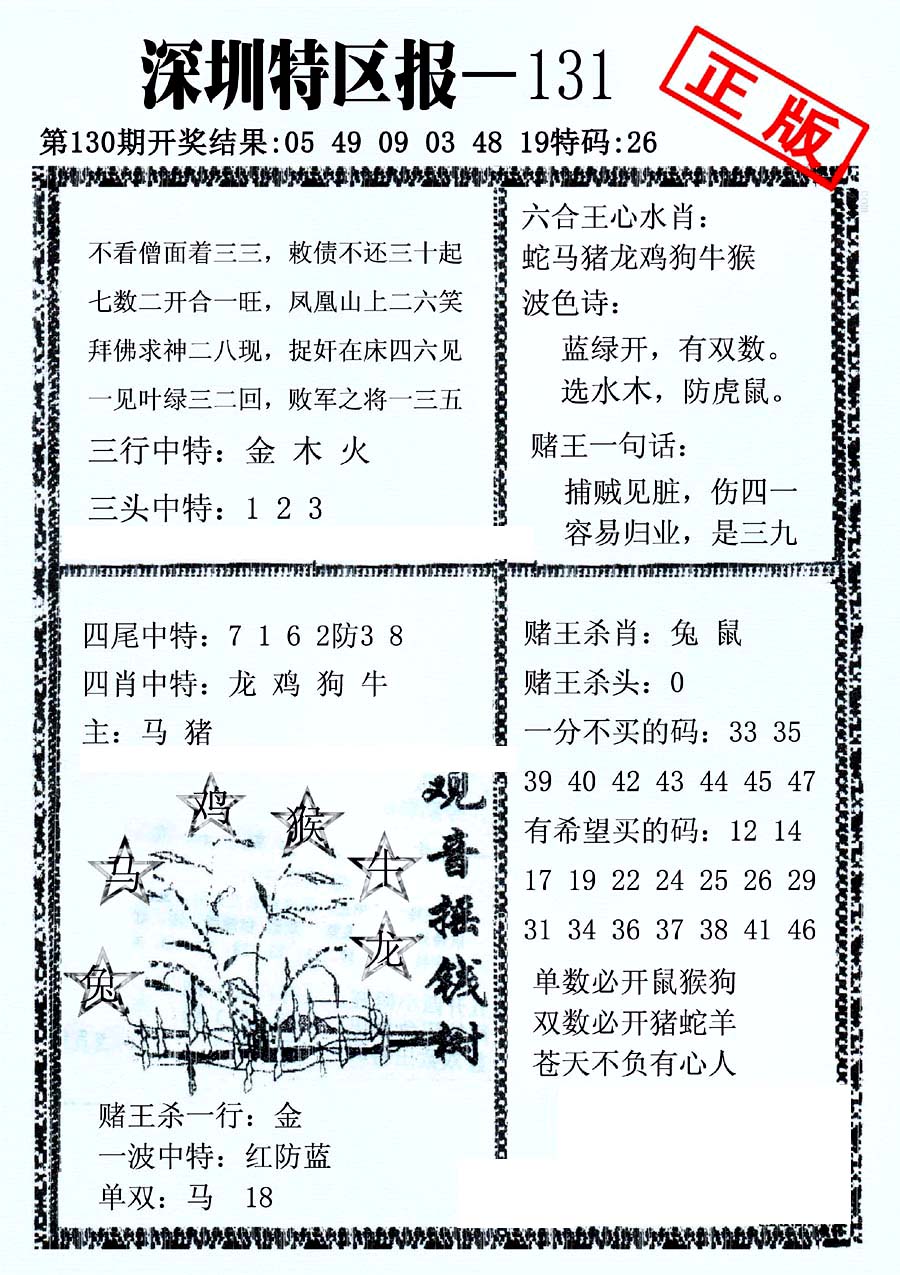 深圳特区报—131
正版
第130期开奖结果:05 49 09 03 48 19特码:26
不看僧面着三三，敕债不还三十起
七数二开合一旺，凤凰山上二六笑
拜佛求神二八现，捉奸在床四六见
一见叶绿三二回，败军之将一三五
三行中特：金 木 火
三头中特：1 2 3
六合王心水肖：
蛇马猪龙鸡狗牛猴
波色诗：
蓝绿开，有双数。
选水木，防虎鼠。
赌王一句话：
捕贼见脏，伤四一
容易归业，是三九
四尾中特：7 1 6 2防3 8
四肖中特：龙 鸡 狗 牛
主：马 猪
鸡
猴
马
牛
龙
兔
观音摇钱树
赌王杀一行：金
一波中特：红防蓝
单双：马 18
赌王杀肖：兔 鼠
赌王杀头：0
一分不买的码：33 35
39 40 42 43 44 45 47
有希望买的码：12 14
17 19 22 24 25 26 29
31 34 36 37 38 41 46
单数必开鼠猴狗
双数必开猪蛇羊
苍天不负有心人